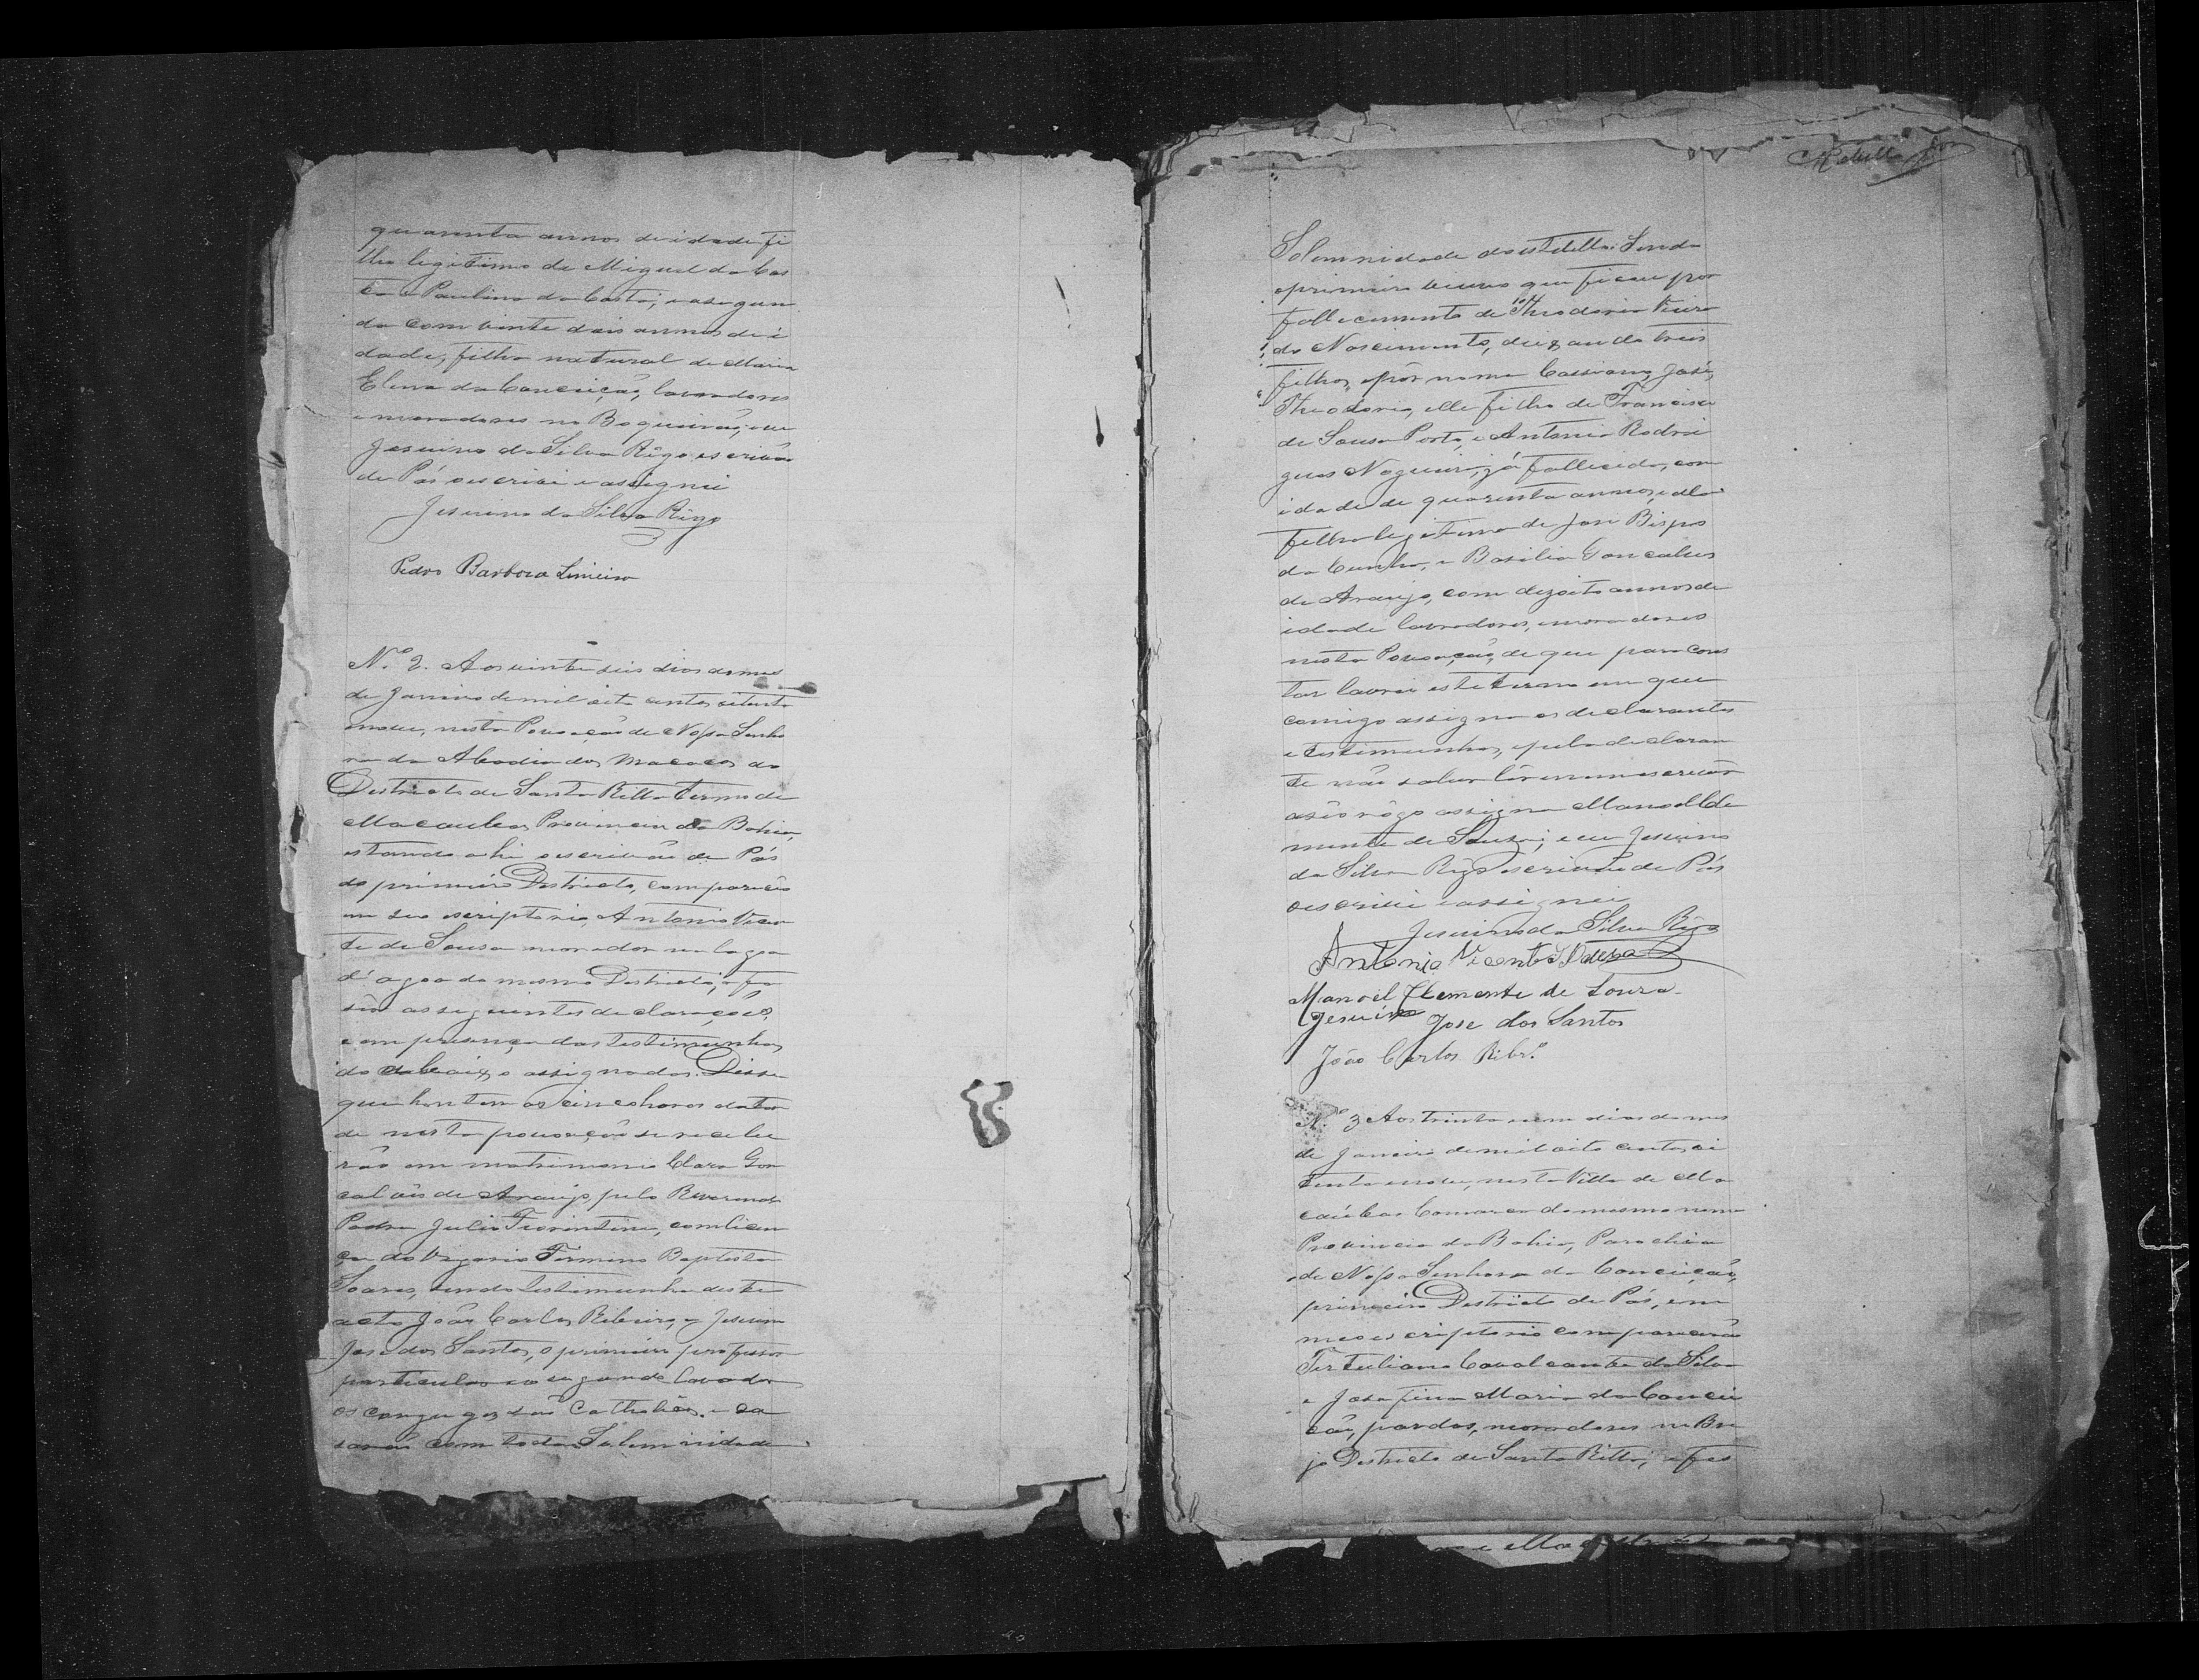 quarenta annos de idade fi
lho legitimo de Miguel da Cos
ta e Paulina da Costa; e a segun
da com vinte dois annos de i
dade, filha natural de Maria
Elena da Conceiçaõ, lavradores
e moradores no Boqueiraõ; eu
Jesuino da Silva Rêgo escrivaõ
de Pás o escrivi e assignei
Jesuino da Silva Rêgo
Pedro Barboza Limeira
N.º 2. Aos vinte seis dias do mes
de Janeiro de mil oito centos setenta
e nove, nesta Povoaçaõ de Nossa Senho
ra da Abadia dos Macacos do
Destricto de Santa Ritta termo de
Macaubas Provincia da Bahia,
estando ahi o escrivaõ de Pás
do primeiro Destricto, compareceo
em seu escriptorio, Antonio Vicen
te de Sousa morador na lagoa
d'agoa do mesmo Destricto, e fa
sêo as seguintes declaraçoẽs,
e em presença das testimunhas
do abaixo assignados. Disse
que hontem as cinco horas da tar
de nesta povoaçaõ se recebe
raõ em matrimonio Clara Gon
calves de Araujo, pelo Reverendo
Padre Julio Fiorintini, com licen
ça do Vigario Firmino Baptista
Soares, sendo testimunha deste
acto João Carlos Ribeiro, e Jesuino
José dos Santos, o primeiro professor
particular e o segundo lavrador
os conjuges saõ Catholicos e ca
saraõ com toda Solemnidade
Solemnidade do estillo: Sendo
o primeiro viuvo que ficou por
fallecimento de Theodoria Vieira
do Nascimento, deixando treis
filhos, por nome Cassiano, José,
Theodorio, elle filho de Francisco
de Sousa Porto, e Antonia Rodri
gues Nogueira, já fallecida, com
idade de quarenta annos, e ella
filha legitima de José Bispo
da Cunha, e Basilia Goncalves
de Araujo, com dezoito annos de
idade lavradores, e moradores
nesta Povoaçaõ, de que para cons
tar lavrei este termo em que
comigo assigna os declarantes
e testimunhas, e pela declaran
te naõ saber lêr nem escrever
a seo rôgo assigna Manoel Cle
mente de Souza; e eu Jesuino
da Silva Rêgo escrivaõ de Pás
o escrivi e assignei
Jesuino da Silva Rêgo
Antonio Vicente de Souza
Manoel Clemente de Souza
Jesuino Jose dos Santos
João Carlos Ribr.º
N.º 3 Aos trinta e um dias do mes
de Janeiro de mil oito centos se
tenta e nove, nesta Villa de Ma
caúbas Comarca do mesmo nome
Provincia da Bahia, Parochia
de Nossa Senhora da Conceiçaõ,
primeiro Destricto de Pás, em
meo escriptorio comparecerão
Tertuliano Cavalcante da Silva
e Josefina Maria da Concei
çaõ, pardos, moradores no Bre
jo Destricto de Santa Ritta, e fes